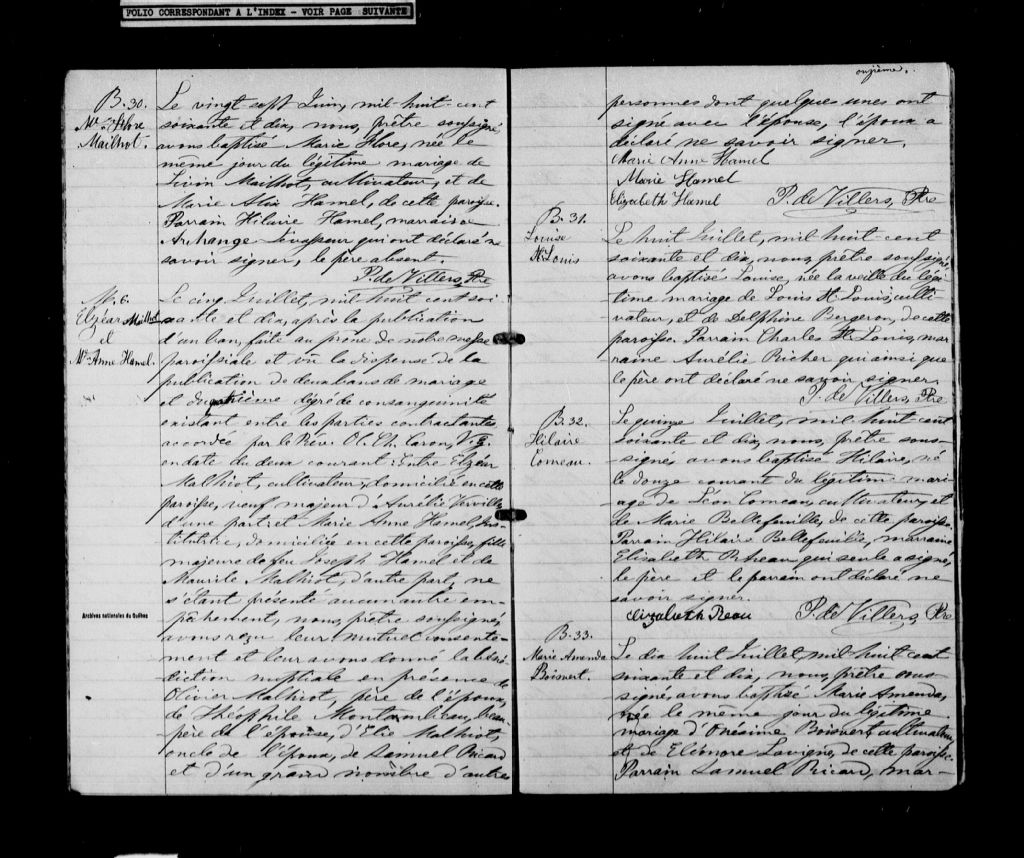 FOLIO CORRESPONDANT A L'INDEX - VOIR PAGE SUIVANTE
B. 30.
Mie Flore
Mailhot.
Le vingt-sept Juin, mil-huit-cent
soixante et dix, nous, prêtre soussigné
avons baptisé Marie Flore, née le
même jour du légitime mariage de
Mailhot, cultivateur, et de
Marie Hamel, de cette paroisse.
Parrain Hilaire Hamel, marraine
Archange qui ont déclaré ne
savoir signer, le père absent.
P. de Villers, Ptre
M. 6.
Elzéar Mailhot
et
Mie Anne Hamel.
Le cinq Juillet, mil-huit cent soi
xante et dix, après la publication
d'un ban, faite au prône de notre messe
paroissiale et vû la dispense de la
publication de deux bans de mariage
et du quatrième dégré de consanguinité
existant entre les parties contractantes
accordée par le Rév. Caron, V. G.
en date du deux courant: Entre Elzéar
Malhiot, cultivateur, domicilié en cette
paroisse, veuf majeur d'Aurélie Verville
d'une part; et Marie Anne Hamel, ins-
titutrice, domiciliée en cette paroisse, fille
majeure de feu Joseph Hamel et de
Maurile Malhiot, d'autre part, ne
s'étant présenté aucun autre em-
pêchement, nous, prêtre soussigné,
avons reçu leur mutuel consente-
ment et leur avons donné la béné-
diction nuptiale en présence de
Olivier Malhiot, père de l'époux,
de Théophile Montambeau, beau-
père de l'épouse, d'Elie Malhiot,
oncle de l'époux, de Samuel Ricard
et d'un grand nombre d'autres
Archives nationales du Québec
onzième.
personnes dont quelques unes ont
signé avec l'épouse, l'époux a
déclaré ne savoir signer.
Marie Anne Hamel
Marie Hamel
Elizabeth Hamel P. de Villers, Ptre
B. 31.
Louise
St. Louis
Le huit Juillet, mil-huit-cent
soixante et dix, nous, prêtre soussigné
avons baptisés Louise, née la veille du légi-
time mariage de Louis St. Louis, culti-
vateur, et de Delphine Bergeron, de cette
paroisse. Parrain Charles St. Louis, mar-
raine Aurélie Richer qui ainsi que
le père ont déclaré ne savoir signer.
P. de Villers, Ptre
B. 32.
Hilaire
Comeau.
Le quinze Juillet, mil-huit-cent
soixante et dix, nous, prêtre sous-
-signé, avons baptisé Hilaire, né
le douze courant du légitime mari-
age de Léon Comeau, cultivateur, et
de Marie Bellefeuille, de cette paroisse.
Parrain Hilaire Bellefeuille, marraine
Elisabeth Rheau, qui seule a signé,
le père et le parrain ont déclaré ne
savoir signer.
Elizabeth Reau P. de Villers, Ptre
B. 33.
Marie Amenda
Boisvert.
Le dix huit Juillet, mil-huit cent
soixante et dix, nous, prêtre sous-
signé, avons baptisé Marie Amenda,
née le même jour du légitime
mariage d'Onésime Boisvert, cultivateur
et de Eléonore Lavigne, de cette paroisse.
Parrain Samuel Ricard, mar-